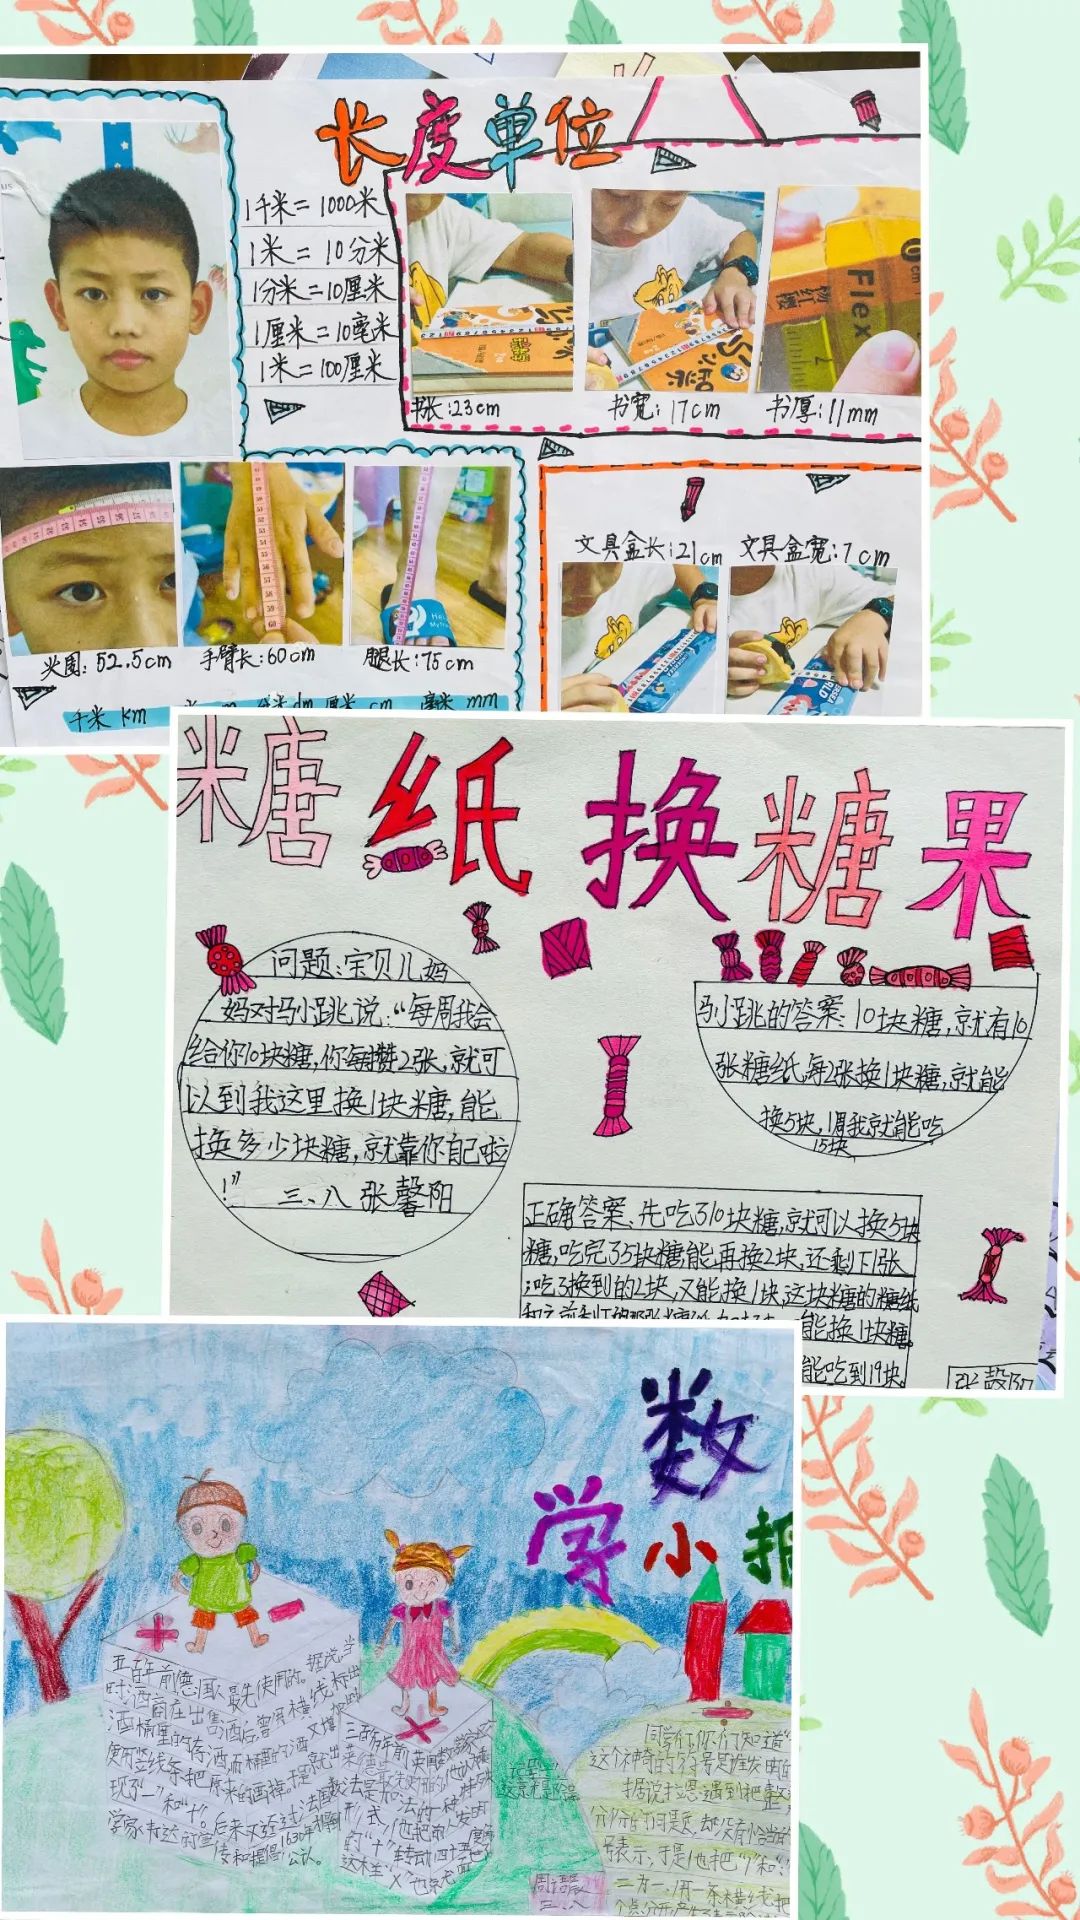 长度单位
1千米=1000米
1米=10分米
1分米=10厘米
1厘米=10毫米
1米=100厘米
Flex
书长:23cm
书宽:17cm
书厚:11mm
文具盒长:21cm
文具盒宽:7cm
头围:52.5cm
手臂长:60cm
腿长:75cm
千米 km
dm 厘米 cm 毫米 mm
糖纸换糖果
问题:宝贝儿妈
妈对马小跳说:“每周我会
给你10块糖,你每攒2张,就可
以到我这里换1块糖,能
换多少块糖,就靠你自己啦
!” 三、八 张馨阳
马小跳的答案:10块糖,就有10
张糖纸,每2张换1块糖,就能
换5块,1周我就能吃
15块
正确答案:先吃了10块糖,就可以换5块
糖,吃完了5块糖,能再换2块,还剩下1张
;吃了换到的2块,又能换1块,这块糖的糖纸
能换1块糖。
能吃到19块。
张馨阳
数
学小报
五百年前德国人最先使用的。据说当
时酒商在出售酒后,曾用横线标出
酒桶里的存酒,而桶里的酒又增加时
便用竖线条把原来的画掉。于是就出
现了“-”和“+”。后来又经过法国数
学家韦达的宣传和提倡,1630年才得到
公认。
三百多年前
法是加法的一种特殊
形式,他把前人发明
的“+”转动四十五度
这样“×”也
同学们,你们知道
这个神奇的符号是谁发明的
据说拉恩遇到把整
分分的问题,却没有恰当的
号表示,于是他把
二为一,用一条横线把
三、八